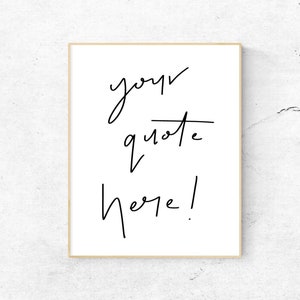 your
quote
here!